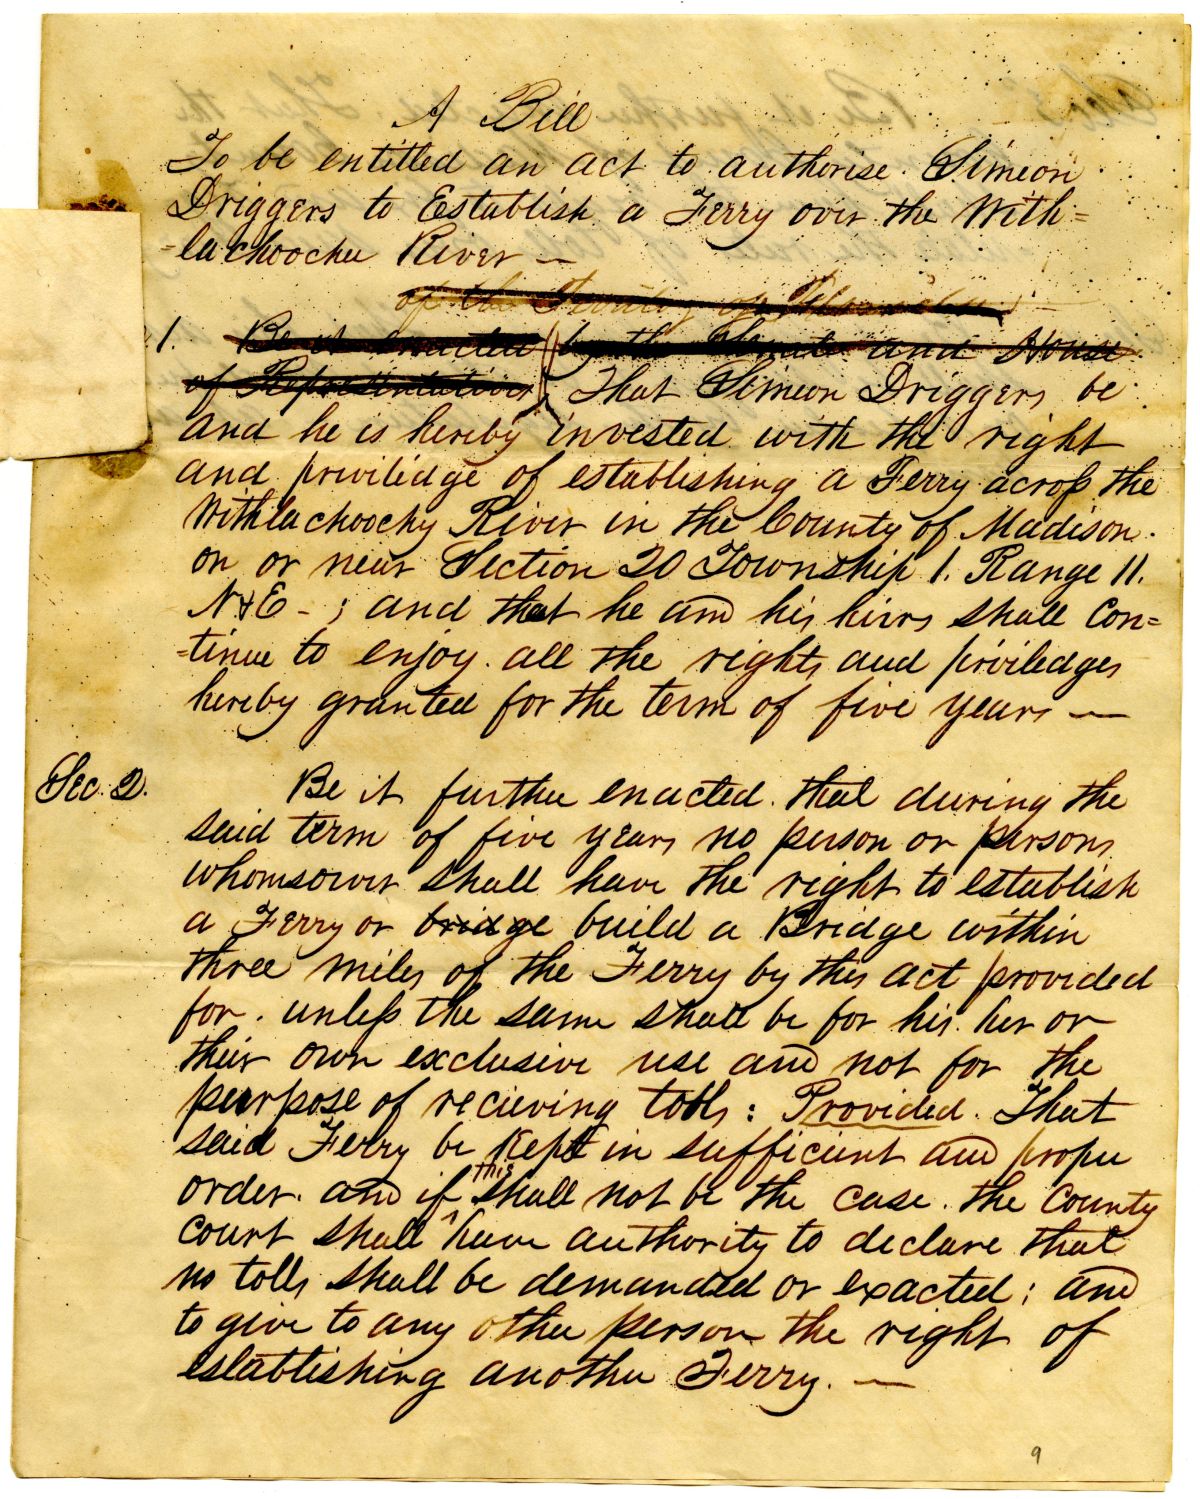 A Bill
To be entitled an act to authorise Simeon
Driggers to Establish a Ferry over the With=
=lachoochee River —
of the Territory of Florida
1. Be it enacted by the Senate and House
of Representatives That Simeon Driggers be
and he is hereby invested with the right
and priviledge of establishing a Ferry across the
Withlachoochy River in the County of Madison.
on or near Section 20 Township 1. Range 11.
N & E - ; and that he and his heirs shall Con=
=tinue to enjoy all the rights and priviledges
hereby granted for the term of five years —
Sec. 2. Be it further enacted. that during the
said term of five years no person or persons
whomsoever shall have the right to establish
a Ferry or bridge build a Bridge within
three miles of the Ferry by this act provided
for. unless the same shall be for his. her or
their own exclusive use and not for the
purpose of recieving tolls: Provided. That
said Ferry be kept in sufficient and proper
order. and if this shall not be the case. the County
Court shall have authority to declare that
no tolls shall be demanded or exacted; and
to give to any other person the right of
establishing another Ferry. —
9